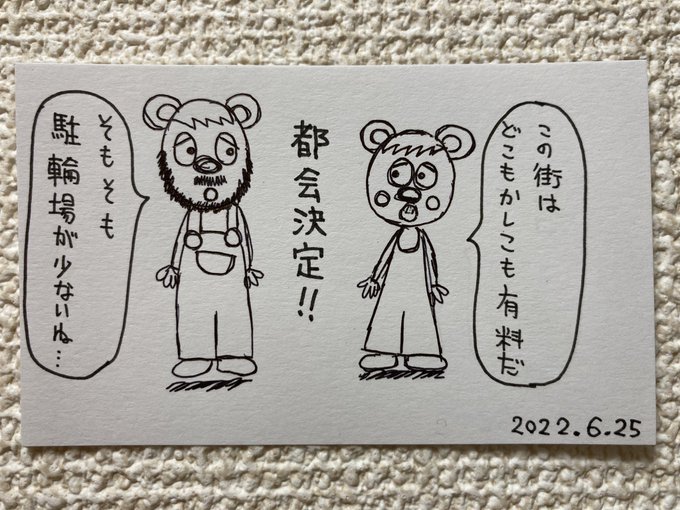 この街は
どこもかしこも有料だ
都会決定!!
そもそも
駐輪場が少ないね…
2022.6.25